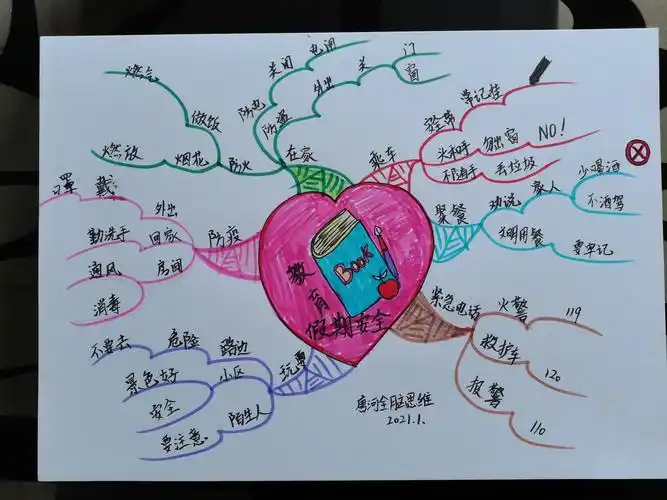 教育
假期安全
Book
在家
防火
做饭
燃气
烟花
燃放
防电
关闭
电闸
防盗
外出
关
门
窗
乘车
安全带
常记挂
头和手
勿出窗
NO!
不随手
丢垃圾
聚餐
劝说
家人
少喝酒
不酒驾
文明用餐
要牢记
紧急电话
火警
119
救护车
120
报警
110
玩耍
路边
危险
不要去
小区
景色好
安全
陌生人
要注意
防疫
外出
戴
罩
回家
勤洗手
房间
通风
消毒
唐河全脑思维
2021.1.